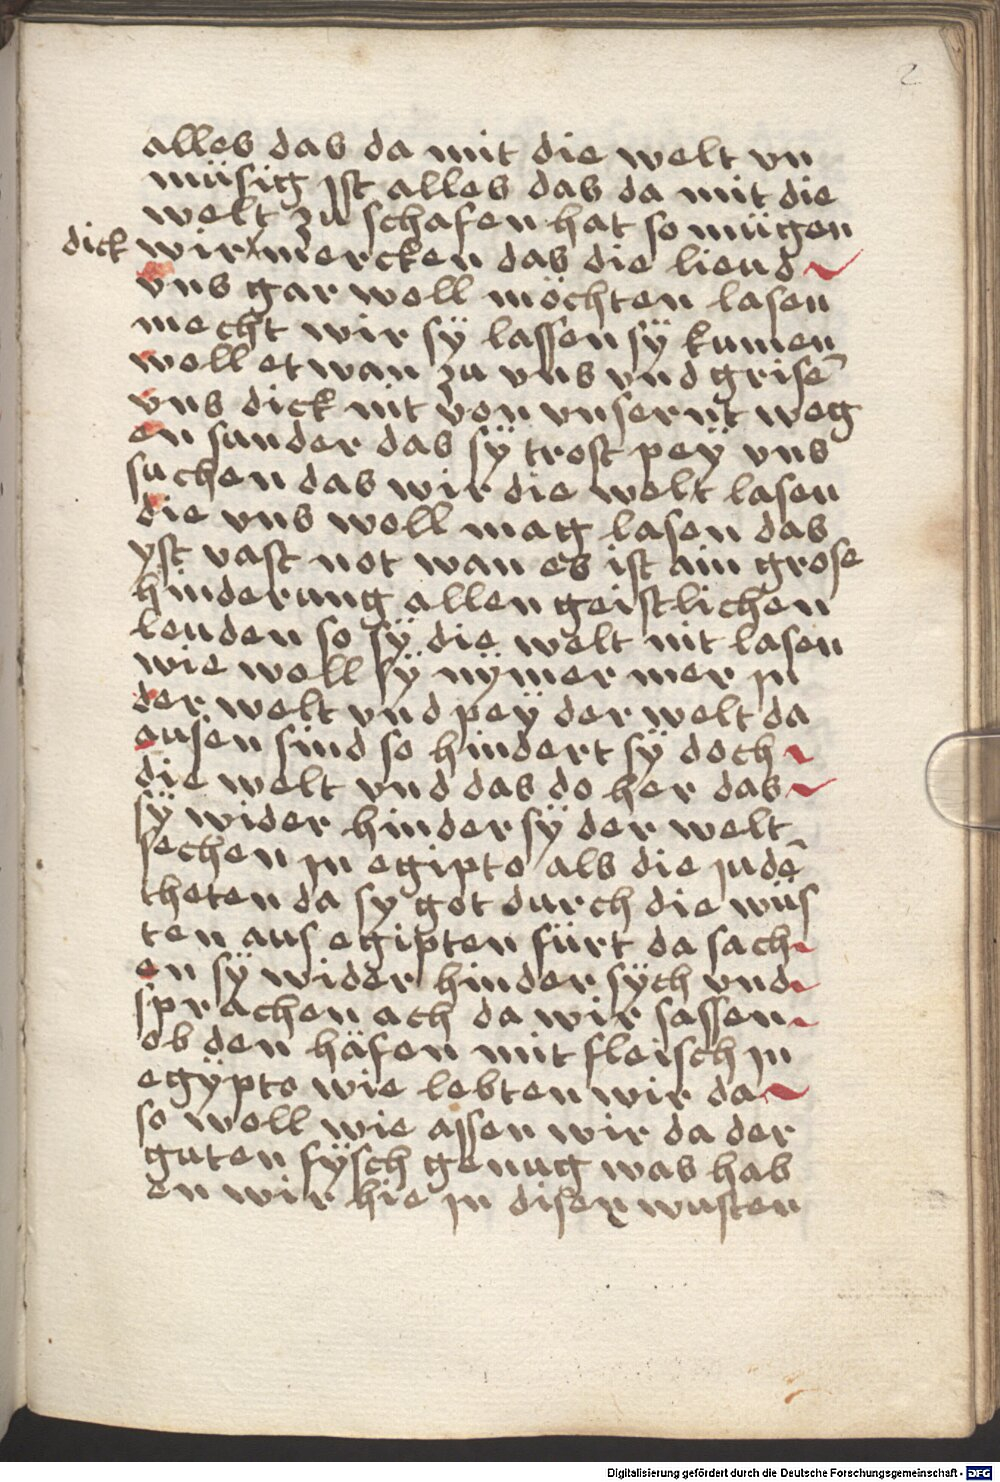 2
alles das da mit die welt vn
müsig ist alles das da mit die
welt zu schafen hat so mügen
dick wir mercken das die liend
vns gar woll möchten lasen
mecht wir sÿ lassen sÿ kumen
woll etwan zu vns vnd grisē
vns dick nit von vnsernt weg
en sunder das sÿ trost peÿ vns
suchen das wir die welt lasen
die vns woll mag lasen das
yst vast not wan es ist ain grose
hinderung allen geistlichen
leuden so sÿ die welt nit lasen
wie woll sÿ nÿmer mer in
der welt vnd peÿ der welt da
ausen sind so hindert sÿ doch
die welt vnd das do her das
sÿ wider hinder sÿ der welt
sechen in egipto als die judē
theten da sy got durch die wüs
ten aus egipten fürt da sach
en sÿ wider hinder sÿch vnd
sprachen ach da wir sassen
ob den häfen mit fleisch in
egÿpto wie lebten wir da
so woll wie assen wir da der
guten fÿsch genug was hab
en wir hie in diser wusten
Digitalisierung gefördert durch die Deutsche Forschungsgemeinschaft - DFG